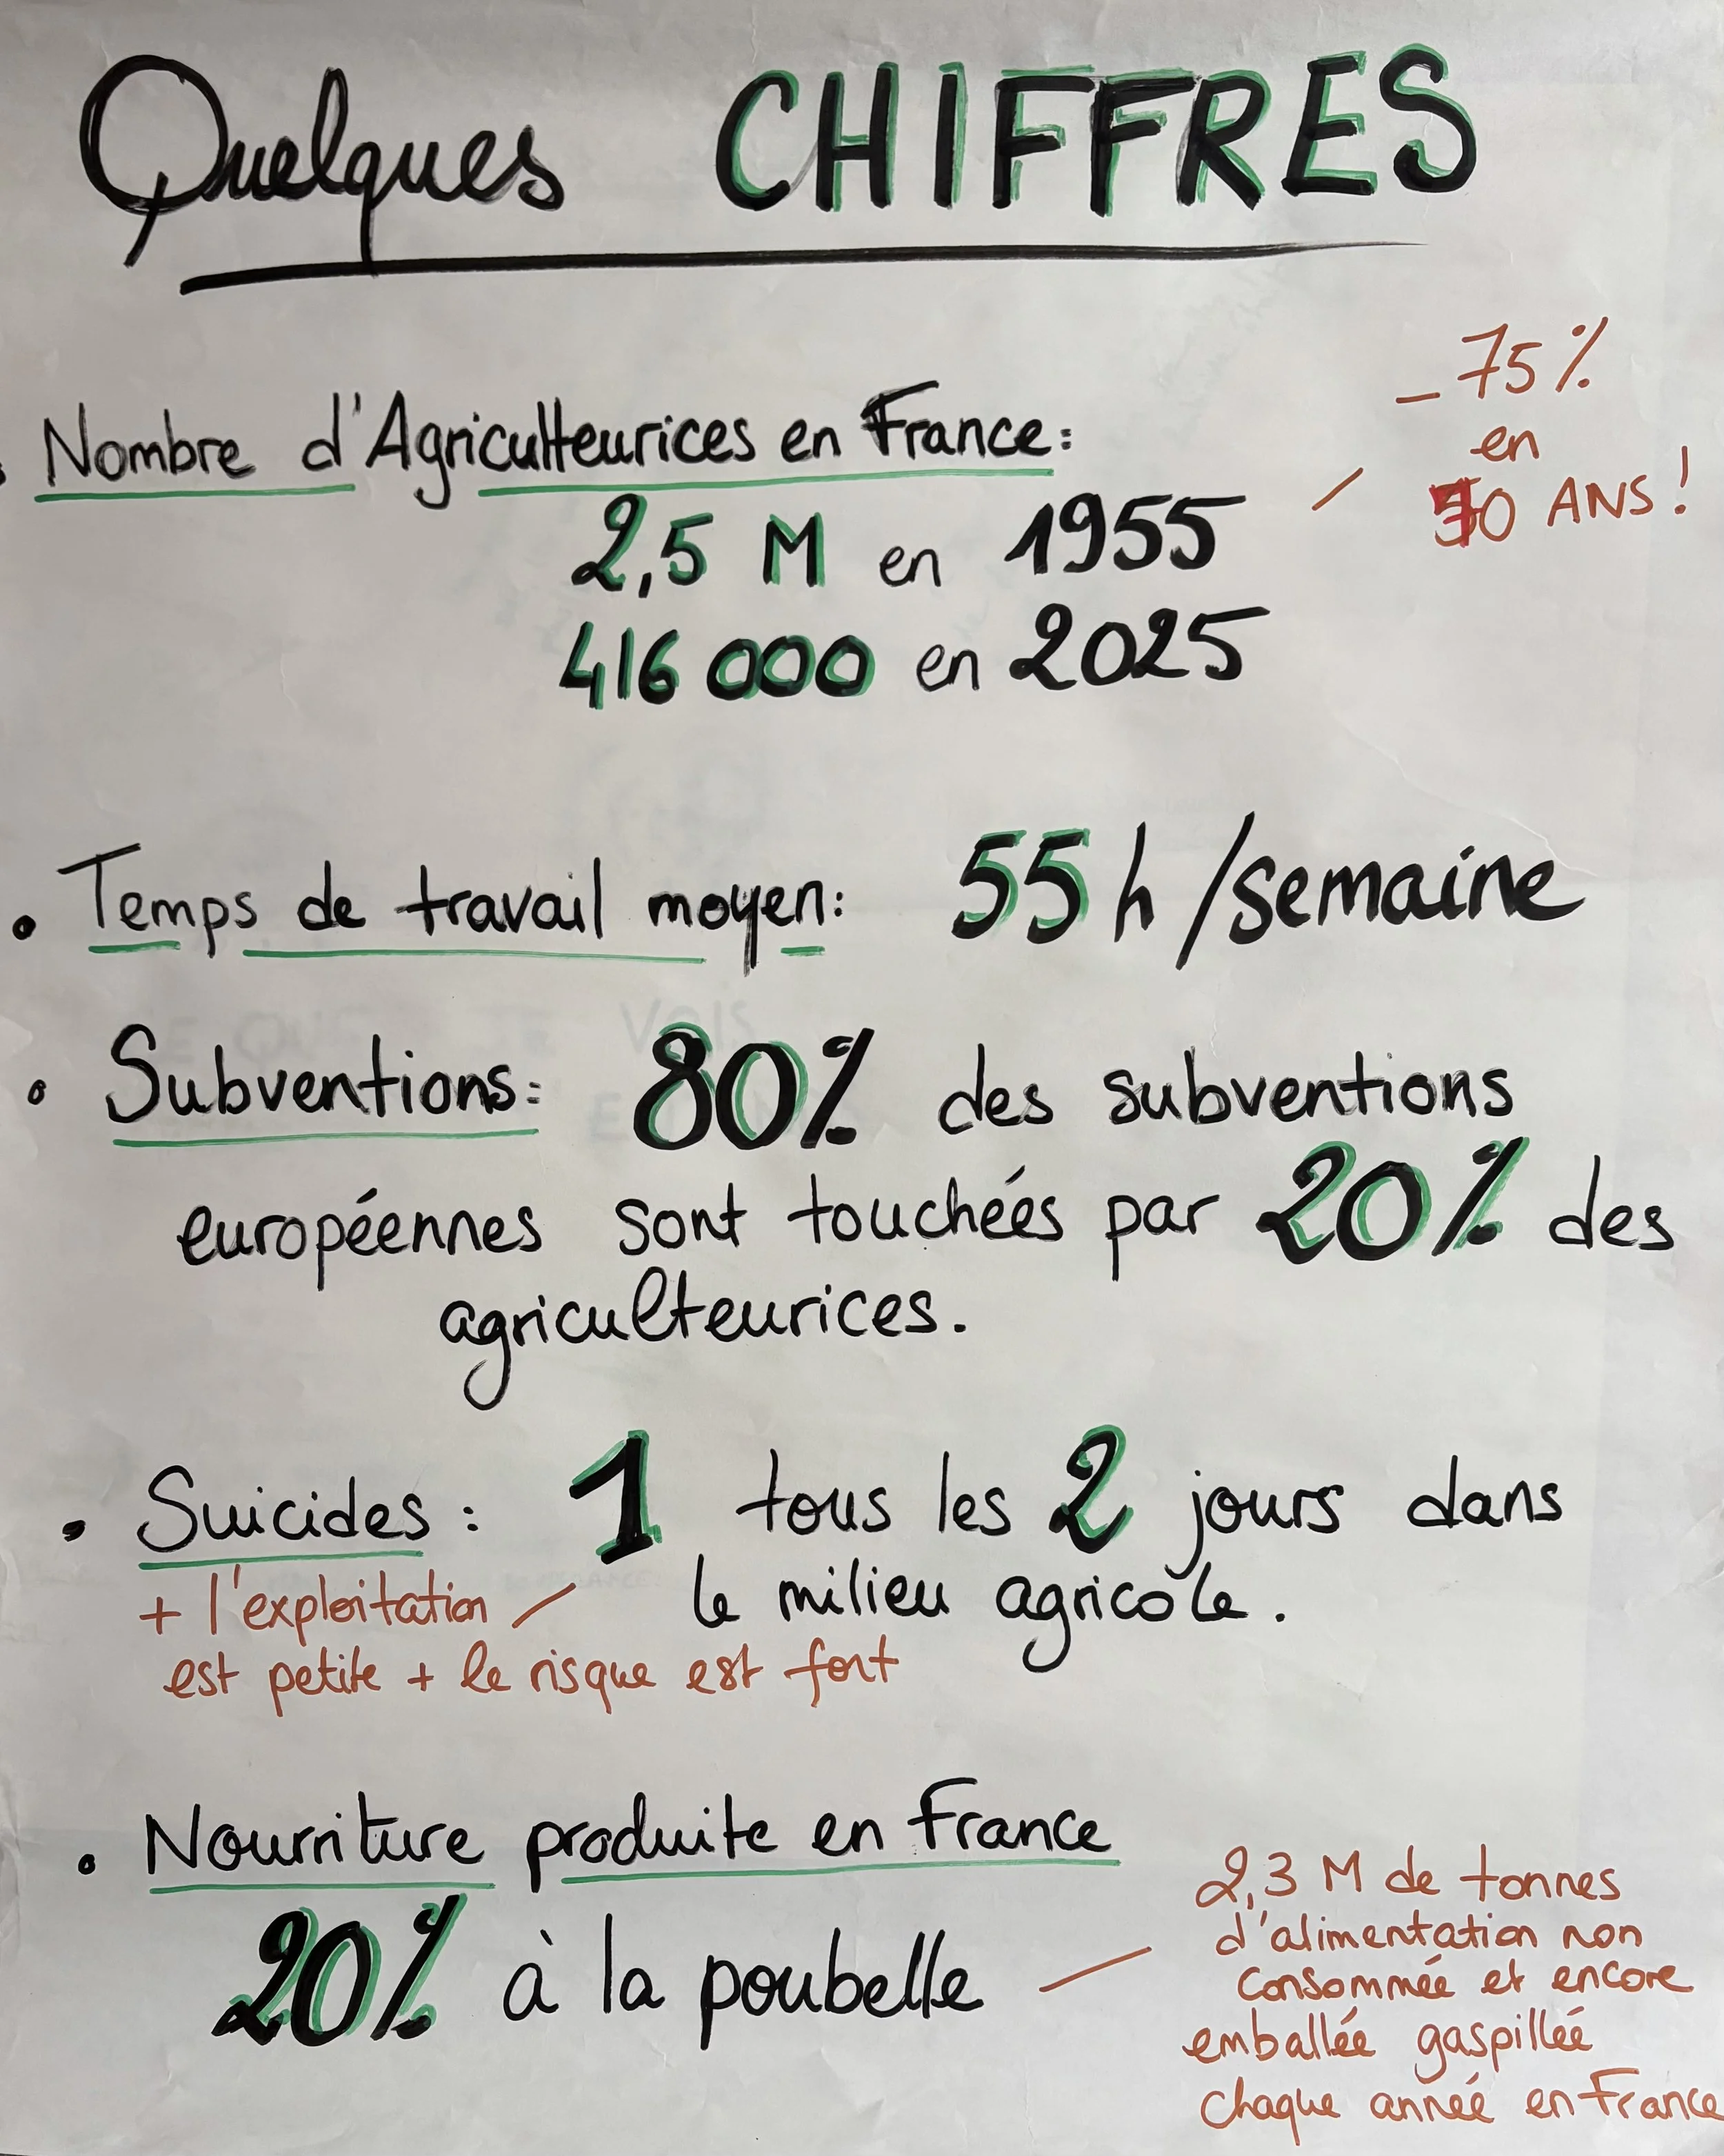 Quelques CHIFFRES
• Nombre d'Agriculteurices en France:
2,5 M en 1955
416 000 en 2025
– 75%
en
70 ANS!
• Temps de travail moyen: 55 h /semaine
• Subventions: 80% des subventions
européennes sont touchées par 20% des
agriculteurices.
• Suicides: 1 tous les 2 jours dans
le milieu agricole.
+ l'exploitation
est petite + le risque est fort
• Nourriture produite en France
20% à la poubelle
2,3 M de tonnes
d'alimentation non
consommée et encore
emballée gaspillée
chaque année en France